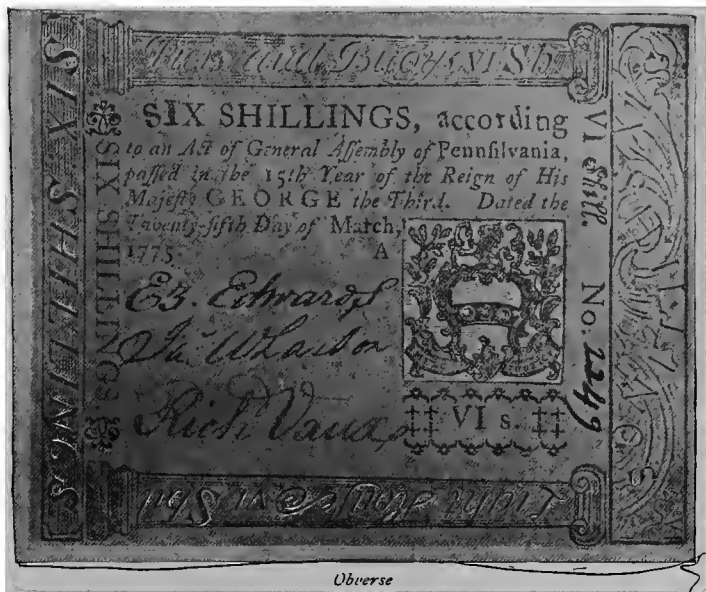 Piers and Buoys VI Sh
SIX SHILLINGS
SIX SHILLINGS
SIX SHILLINGS, according
to an Act of General Assembly of Pennsilvania,
passed in the 15th Year of the Reign of His
Majesty GEORGE the Third. Dated the
Twenty-fifth Day of March,
1775. A
VI Shill. No. 2249
Ed. Edwards
Jn° Wharton
Rich Vaux
VI s.
Light House VI Shil
Obverse